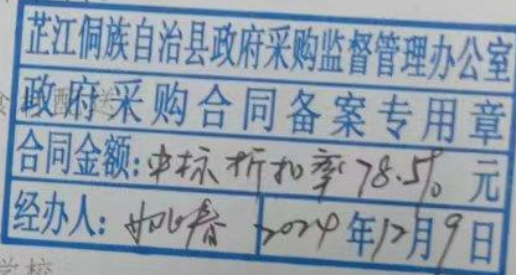 芷江侗族自治县政府采购监督管理办公室
政府采购合同备案专用章
合同金额:中标折扣率78.5% 元
经办人: 2024年12月9日
学校